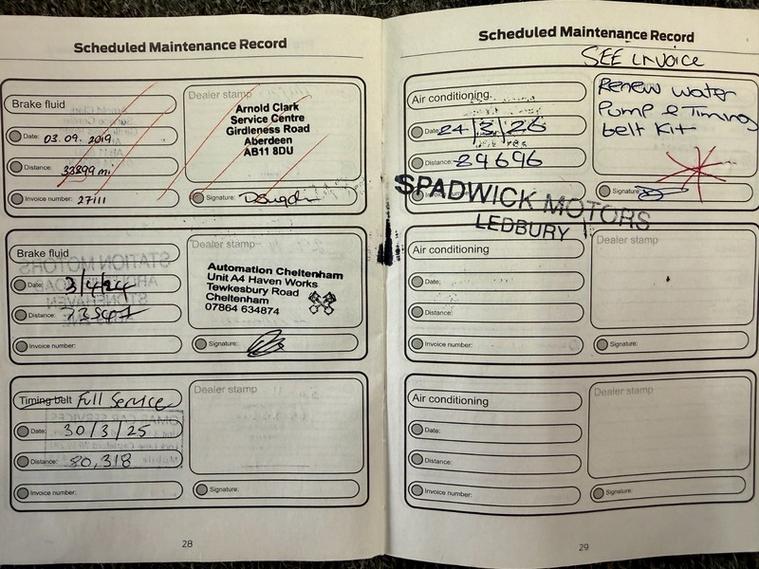 Scheduled Maintenance Record
Brake fluid
Date: 03.09.2019
Distance: 33899 mi
Invoice number: 27111
Dealer stamp
Arnold Clark
Service Centre
Girdleness Road
Aberdeen
AB11 8DU
Signature:
Brake fluid
Date: 3/4/24
Distance:
Invoice number:
Dealer stamp
Automation Cheltenham
Unit A4 Haven Works
Tewkesbury Road
Cheltenham
07864 634874
Signature:
Timing belt Full Service
Date: 30/3/25
Distance: 80,318
Invoice number:
Dealer stamp
Signature:
28
Scheduled Maintenance Record
SEE INVOICE
Air conditioning
Date: 24/3/26
Distance: 84696
Renew Water
Pump & Timing
belt Kit
Signature:
SPADWICK MOTORS
LEDBURY
Air conditioning
Date:
Distance:
Invoice number:
Dealer stamp
Signature:
Air conditioning
Date:
Distance:
Invoice number:
Dealer stamp
Signature:
29